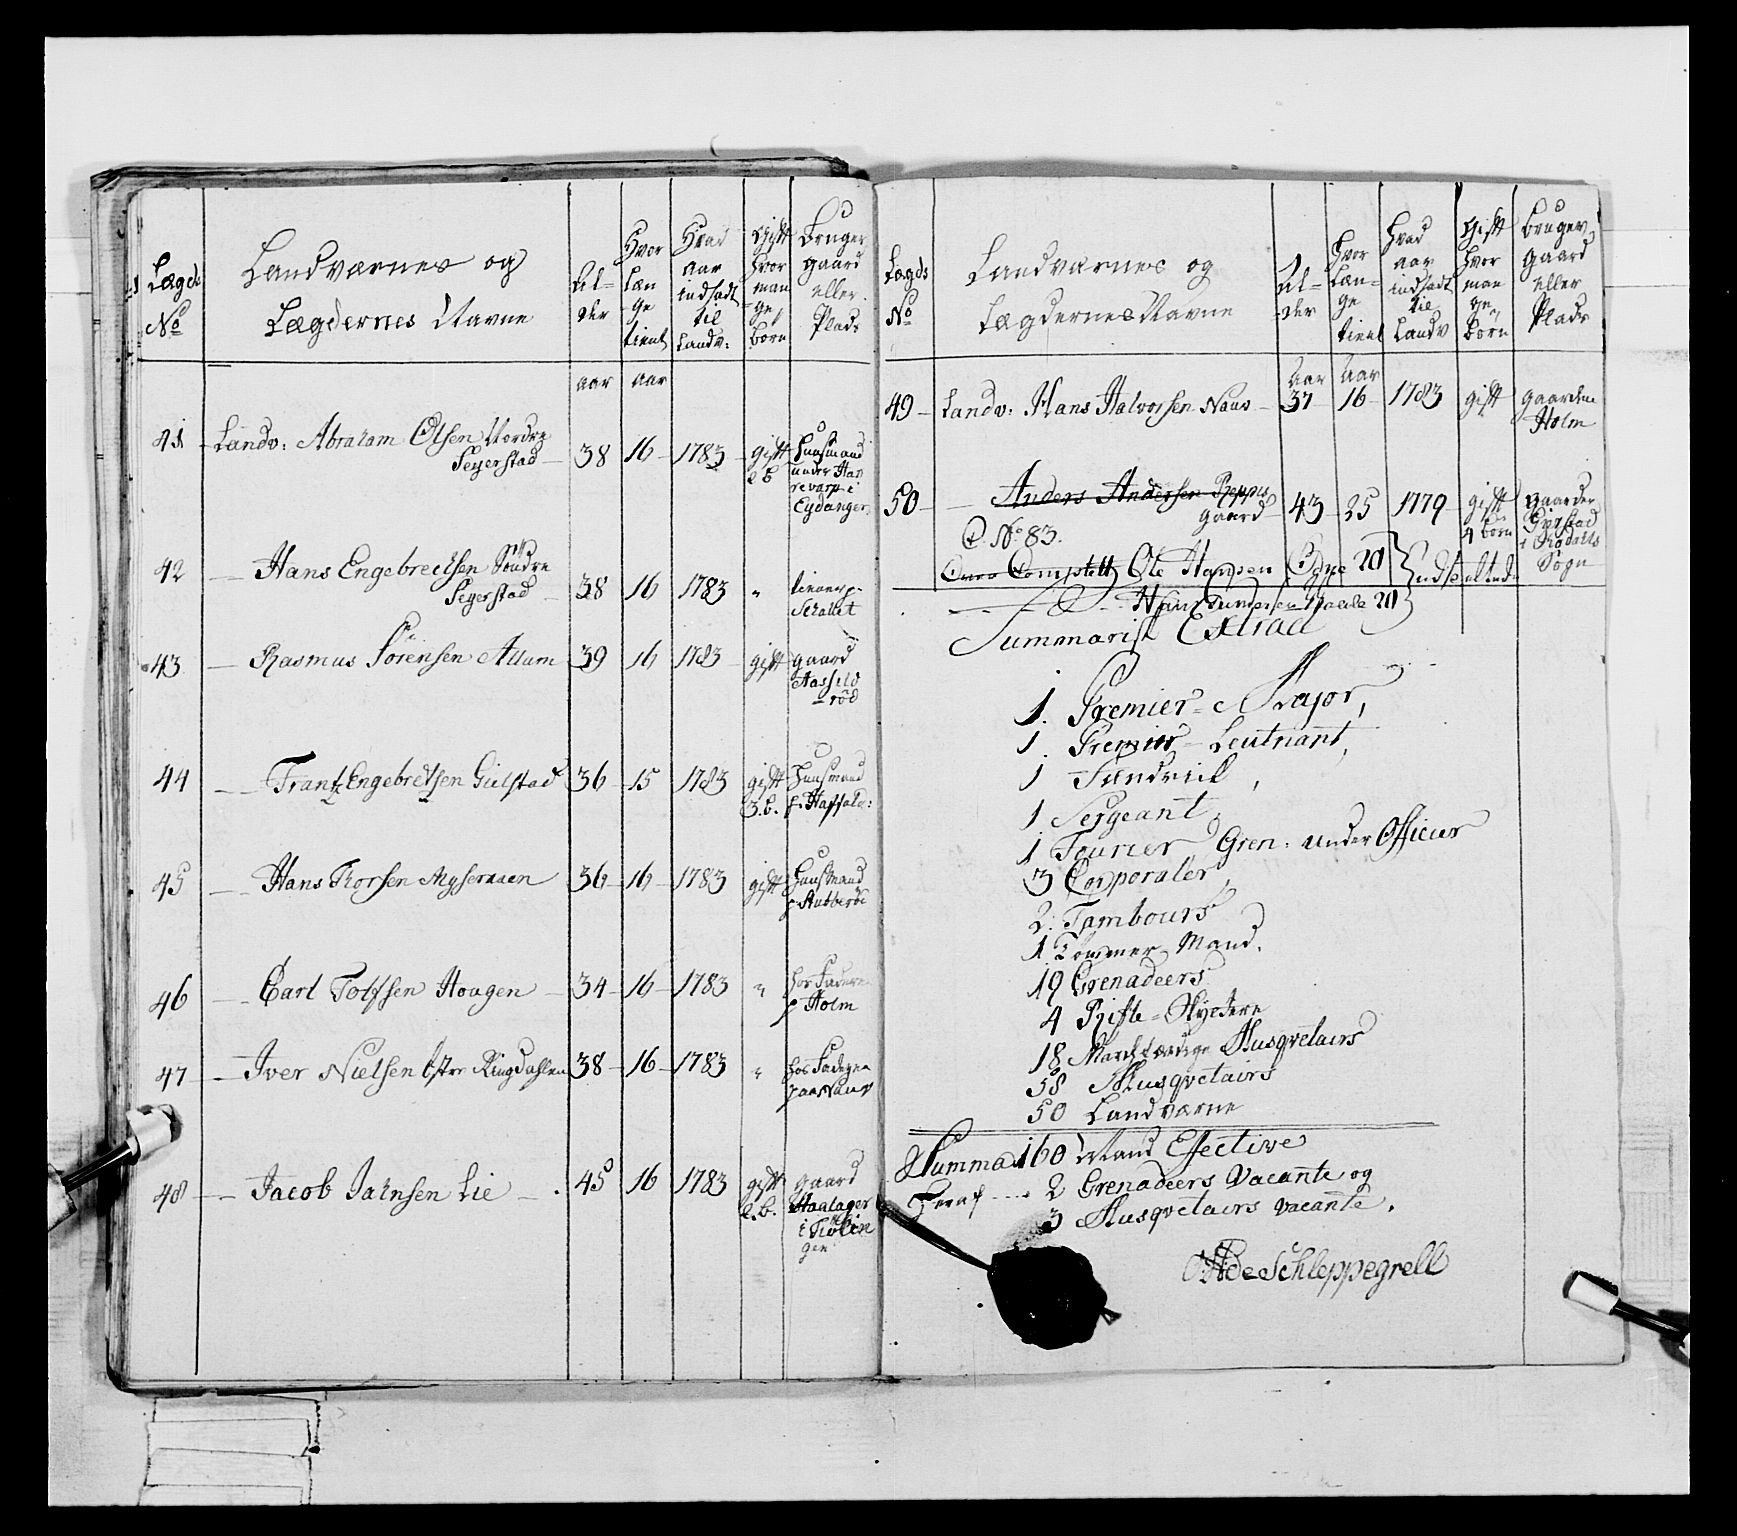 Lægds No
Landværnes og Lægdernes Navne
Al-der
Hvor Læn-ge tient
Hvad aar indsadt til Landv:
Gift hvor man-ge börn
Bruger gaard eller Plads
aar aar
41 Landv: Abraham Olsen Nordre Seyerstad 38 16 1783 gift 2 b Huusmand under Eydanger
42 Hans Engebretsen Söndre Seyerstad 38 16 1783 "
43 Rasmus Sörensen Allum 39 16 1783 gift gaard Aasfeld röd
44 Frantz Engebretsen Gulstad 36 15 1783 gift 3.b. Huusmand p.
45 Hans Thorsen 36 16 1783 gift Huusmand p.
46 Carl Tolfsen Hougen 34 16 1783 " hos p Holm
47 Iver Nielsen Ringdahlen 38 16 1783 " hos Faderen paa Naus
48 Jacob Jahnsen Lie 45 16 1783 gift 2.b. gaard
Lægds No
Landværnes og Lægdernes Navne
Al-der
Hvor Læn-ge tient
Hvad aar indsadt til Landv
Gift hvor man ge börn
Bruger Gaard eller Plads
Aar Aar
49 Landv: Hans Halvorsen Naus 37 16 1783 gift gaarden Holm
50 Anders Andersen gaard 43 25 1779 gift 4 börn gaarden Sogn
C. No 83.
Complett Ole Hansen
Summarisk Extract
1. Premier-Major,
1. Premier-Leutnant,
1
1 Sergeant
1 Fourier Gren: Under Officier
3 Corporaler
2. Tambours
1 Tömmer Mand.
19 Grenadeers
4 Rifle-Skyttere
18 Marchfærdige Musqvetairs
58 Musqvetairs
50 Landværne
Summa 160 Mand Effective
Heraf 2 Grenadeers Vacante og
3 Musqvetairs vacante.
de Schleppegrell